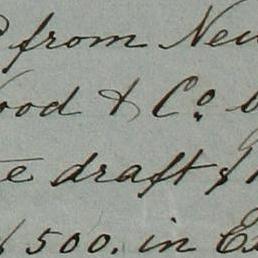 from New
ood & Co.
te draft
500. in